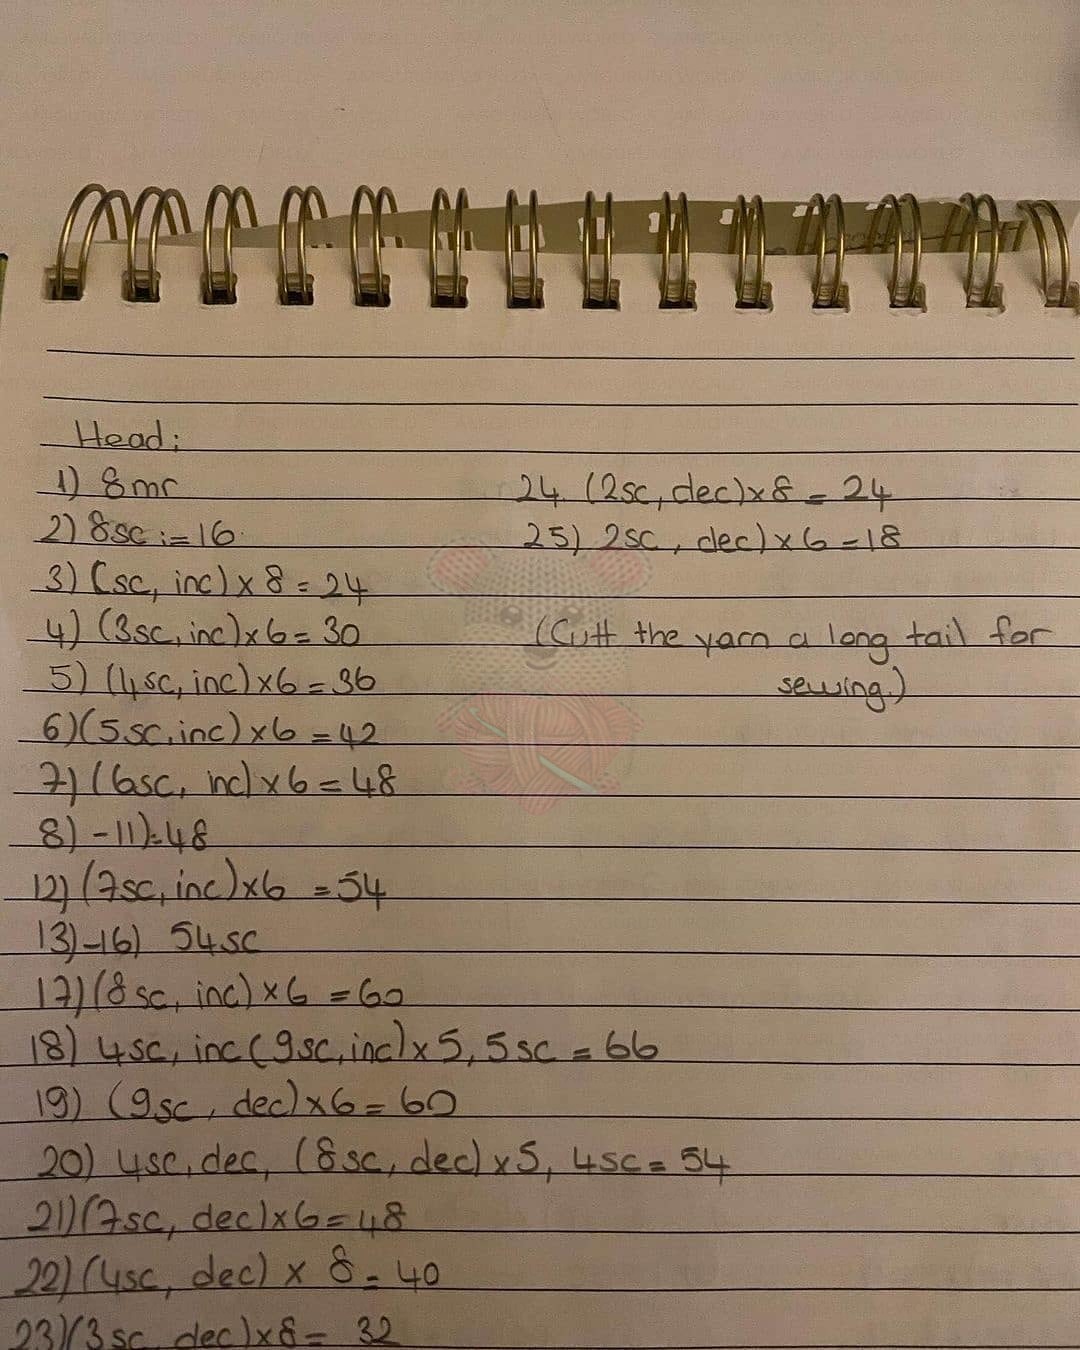 Head:
1) 8mr
2) 8sc := 16
3) (sc, inc) x 8 = 24
4) (3sc, inc)x6 = 30
5) (4sc, inc)x6 = 36
6) (5sc, inc) x6 = 42
7) (6sc, inc)x6 = 48
8) -11)=48
12) (7sc, inc)x6 = 54
13)-16) 54sc
17) (8sc, inc) x6 = 60
18) 4sc, inc (9sc, inc)x5, 5sc = 66
19) (9sc, dec)x6 = 60
20) 4sc, dec, (8sc, dec) x5, 4sc = 54
21) (7sc, dec)x6 = 48
22) (4sc, dec) x 8 = 40
23) (3sc, dec)x8 = 32
24. (2sc, dec)x8 = 24
25) 2sc, dec)x6 = 18
(Cutt the yarn a long tail for
sewing.)